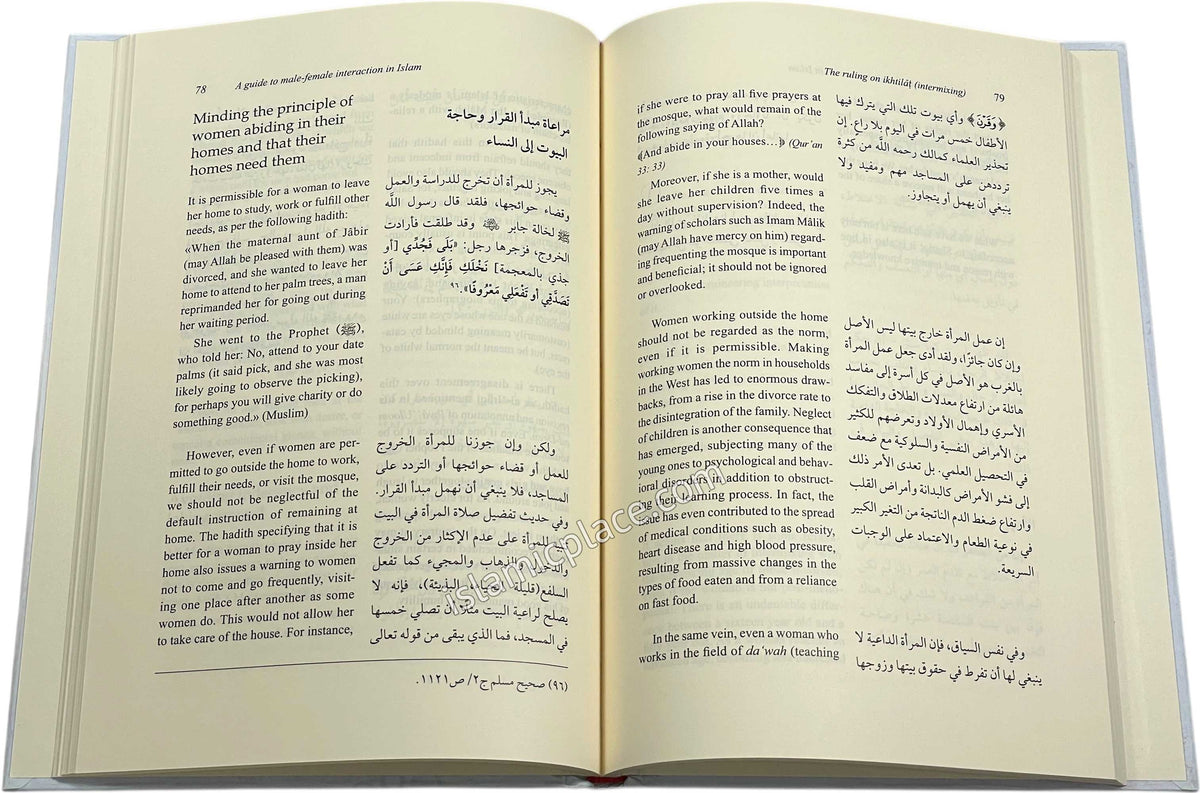 78
A guide to male-female interaction in Islam
Minding the principle of
women abiding in their
homes and that their
homes need them
It is permissible for a woman to leave
her home to study, work or fulfill other
needs, as per the following hadith:
«When the maternal aunt of Jâbir
(may Allah be pleased with them) was
divorced, and she wanted to leave her
home to attend to her palm trees, a man
reprimanded her for going out during
her waiting period.
She went to the Prophet (ﷺ),
who told her: No, attend to your date
palms (it said pick, and she was most
likely going to observe the picking),
for perhaps you will give charity or do
something good.» (Muslim)
However, even if women are per-
mitted to go outside the home to work,
fulfill their needs, or visit the mosque,
we should not be neglectful of the
default instruction of remaining at
home. The hadith specifying that it is
better for a woman to pray inside her
home also issues a warning to women
not to come and go frequently, visit-
ing one place after another as some
women do. This would not allow her
to take care of the house. For instance,
مراعاة مبدأ القرار وحاجة
البيوت إلى النساء
يجوز للمرأة أن تخرج للدراسة والعمل
وقضاء حوائجها، فلقد قال رسول اللَّه
ﷺ لخالة جابر وقد طلقت فأرادت
الخروج، فزجرها رجل: «بَلَى فَجُدِّي [أو
جذي بالمعجمة] نَخْلَكِ فَإِنَّكِ عَسَى أَنْ
تَصَدَّقِي أَو تَفْعَلِي مَعْرُوفًا».٩٦
ولكن وإن جوزنا للمرأة الخروج
للعمل أو قضاء حوائجها أو التردد على
المساجد، فلا ينبغي أن نهمل مبدأ القرار.
وفي حديث تفضيل صلاة المرأة في البيت
للمرأة على عدم الإكثار من الخروج
والذهاب والمجيء كما تفعل
السلفع فإنه لا
يصلح لراعية البيت مثلًا أن تصلي خمسها
في المسجد، فما الذي يبقى من قوله تعالى
(٩٦) صحيح مسلم ج٢/ ص١١٢١.
The ruling on ikhtilâṭ (intermixing)
79
if she were to pray all five prayers at
the mosque, what would remain of the
following saying of Allah?
﴾And abide in your houses…﴿ (Qur'an
33: 33)
Moreover, if she is a mother, would
she leave her children five times a
day without supervision? Indeed, the
warning of scholars such as Imam Mâlik
(may Allah have mercy on him) regard-
ing frequenting the mosque is important
and beneficial; it should not be ignored
or overlooked.
Women working outside the home
should not be regarded as the norm,
even if it is permissible. Making
working women the norm in households
in the West has led to enormous draw-
backs, from a rise in the divorce rate to
the disintegration of the family. Neglect
of children is another consequence that
has emerged, subjecting many of the
young ones to psychological and behav-
ioral disorders in addition to obstruct-
ing their learning process. In fact, the
issue has even contributed to the spread
of medical conditions such as obesity,
heart disease and high blood pressure,
resulting from massive changes in the
types of food eaten and from a reliance
on fast food.
In the same vein, even a woman who
works in the field of da'wah (teaching
﴿وَقَرْنَ﴾ وأي بيوت تلك التي يترك فيها
الأطفال خمس مرات في اليوم بلا راعٍ. إن
تحذير العلماء كمالك رحمه اللَّه من كثرة
ترددهن على المساجد مهم ومفيد ولا
ينبغي أن يهمل أو يتجاوز.
إن عمل المرأة خارج بيتها ليس الأصل
وإن كان جائزًا، ولقد أدى جعل عمل المرأة
بالغرب هو الأصل في كل أسرة إلى مفاسد
هائلة من ارتفاع معدلات الطلاق والتفكك
الأسري وإهمال الأولاد وتعرضهم للكثير
من الأمراض النفسية والسلوكية مع ضعف
في التحصيل العلمي. بل تعدى الأمر ذلك
إلى فشو الأمراض كالبدانة وأمراض القلب
وارتفاع ضغط الدم الناتجة من التغير الكبير
في نوعية الطعام والاعتماد على الوجبات
السريعة.
وفي نفس السياق، فإن المرأة الداعية لا
ينبغي لها أن تفرط في حقوق بيتها وزوجها
islamicplace.com